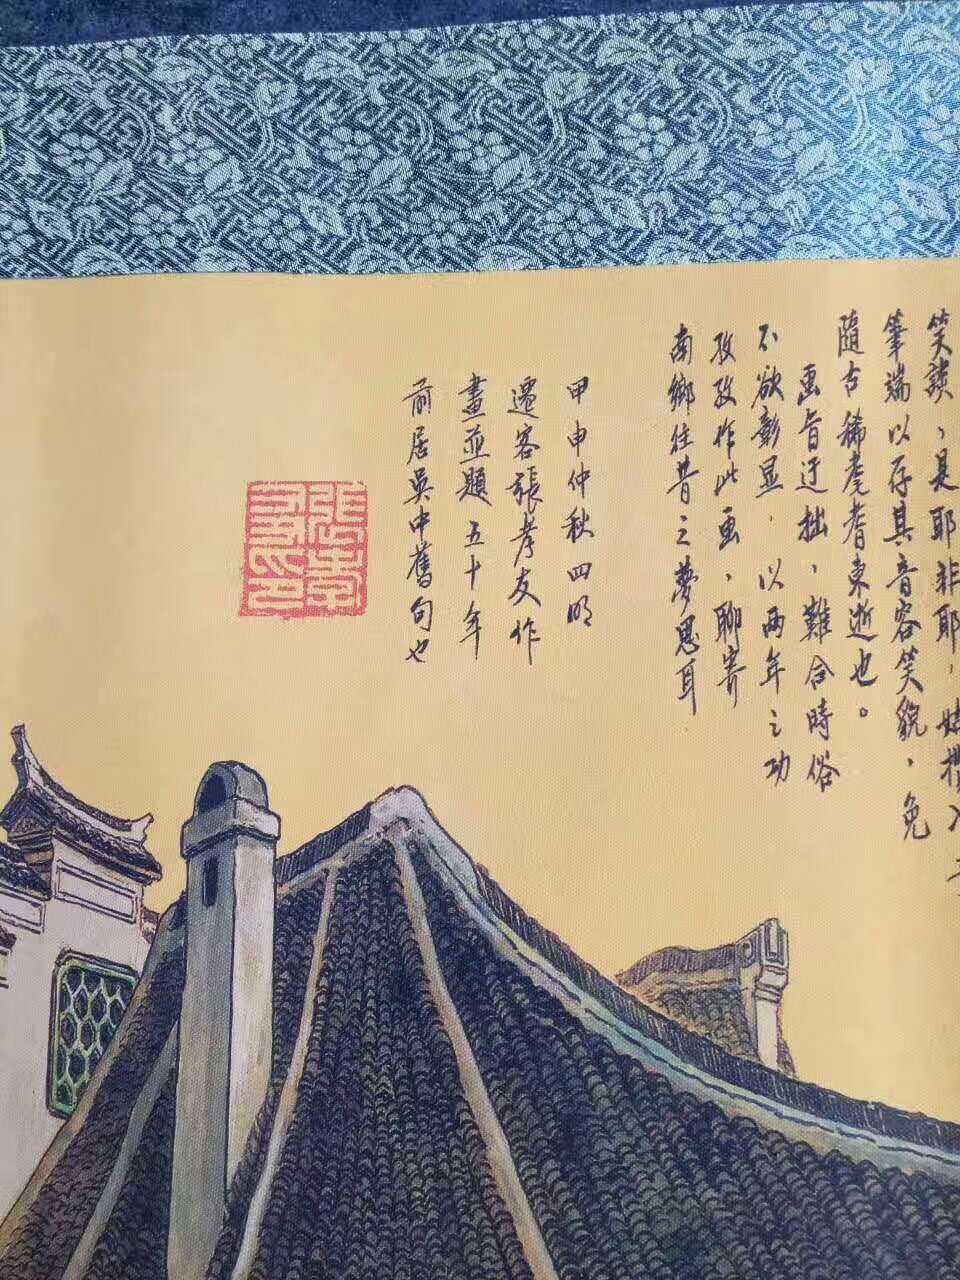 笑談,是耶非耶,
筆端以存其音容笑貌,免
隨古稀耄耆東逝也。
画旨迂拙,難合時俗
不欲彰显.以两年之功
孜孜作此画,聊寄
南鄉往昔之夢思耳
甲申仲秋四明
遷客張孝友作
畫並題五十年
前居吳中舊句也